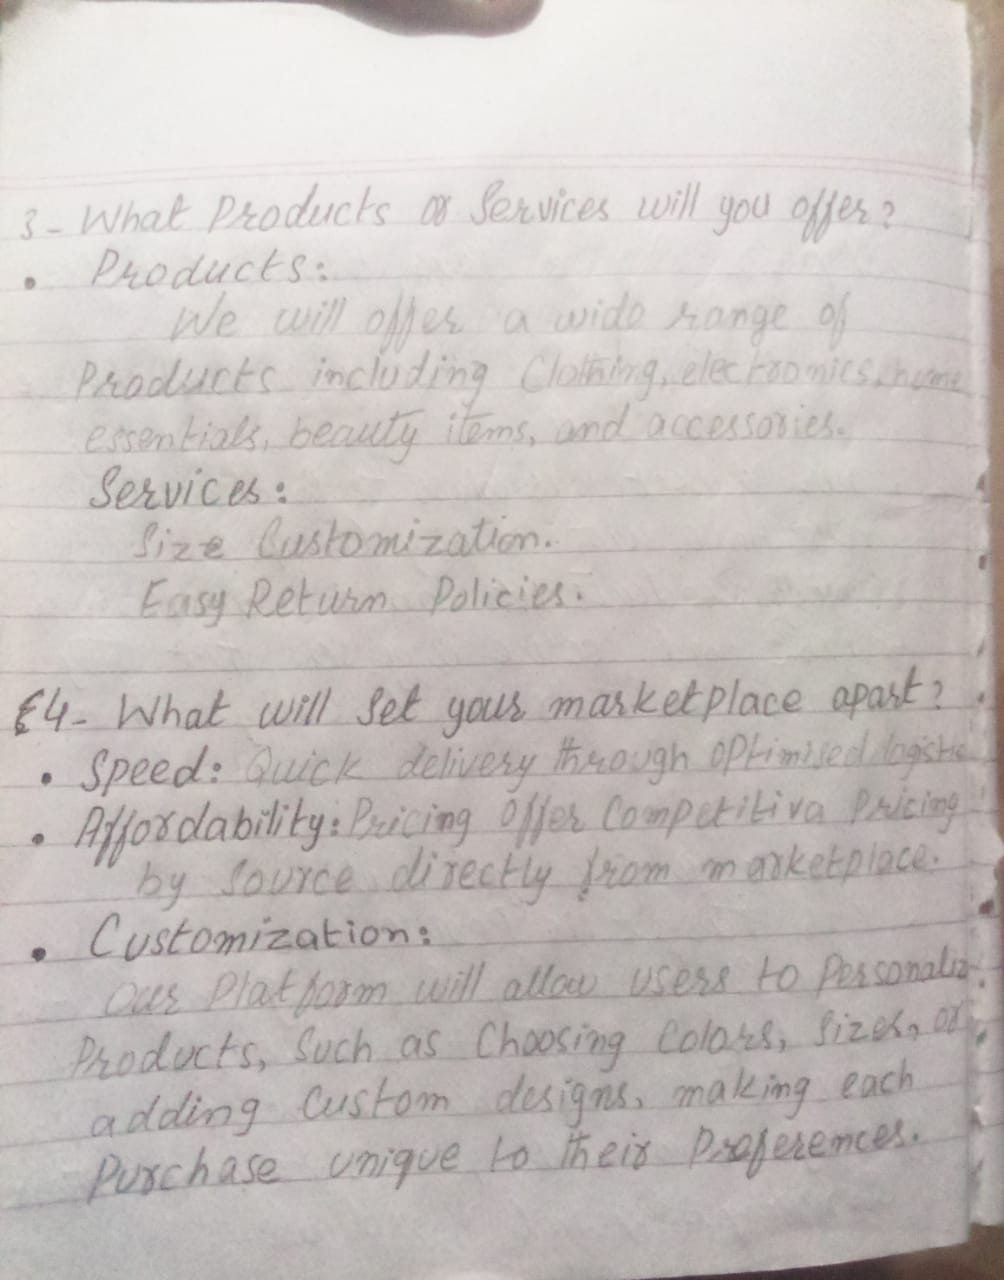 3- What Products or Services will you offer?
• Products:
We will offer a wide range of
Products including Clothing, electronics, home
essentials, beauty items, and accessories.
Services:
Size Customization.
Easy Return Policies.
4- What will Set your marketplace apart?
• Speed: Quick delivery through optimised logistic
• Affordability: Pricing Offer Competitiva Pricing
by Source directly from marketplace.
• Customization:
Our Platform will allow users to Personaliz
Products, Such as Choosing Colors, Sizes, or
adding Custom designs, making each
Purchase unique to their Preferences.